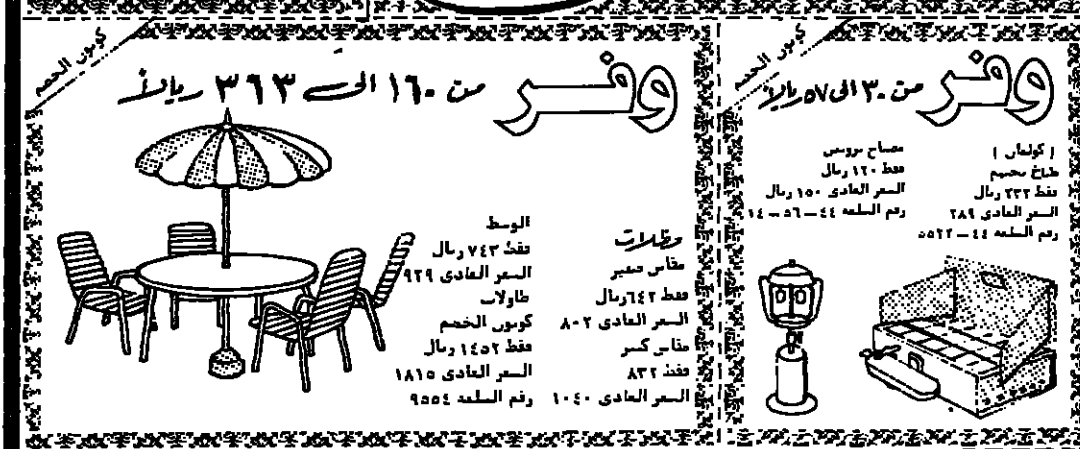 كوبون الخصم
وفر
من ٣٠ الى ٥٧ ريالاً
( كولمان )
طباخ مخيم
فقط ٢٣٢ ريال
السعر العادى ٢٨٩
رقم السلعه ٤٤ – ٥٥٢٢
مصباح بروبين
فقط ١٢٠ ريال
السعر العادى ١٥٠ ريال
رقم السلعه ٤٤ – ٥٦ – ١٤
كوبون الخصم
وفر
من ١٦٠ الى ٣٦٣ ريالاً
مظلات
مقاس صغير
فقط ٦٤٢ ريال
السعر العادى ٨٠٢
مقاس كبير
فقط ٨٣٢
السعر العادى ١٠٤٠
الوسط
فقط ٧٤٣ ريال
السعر العادى ٩٢٩
طاولات
كوبون الخصم
فقط ١٤٥٢ ريال
السعر العادى ١٨١٥
رقم السلعه ٩٥٥٤